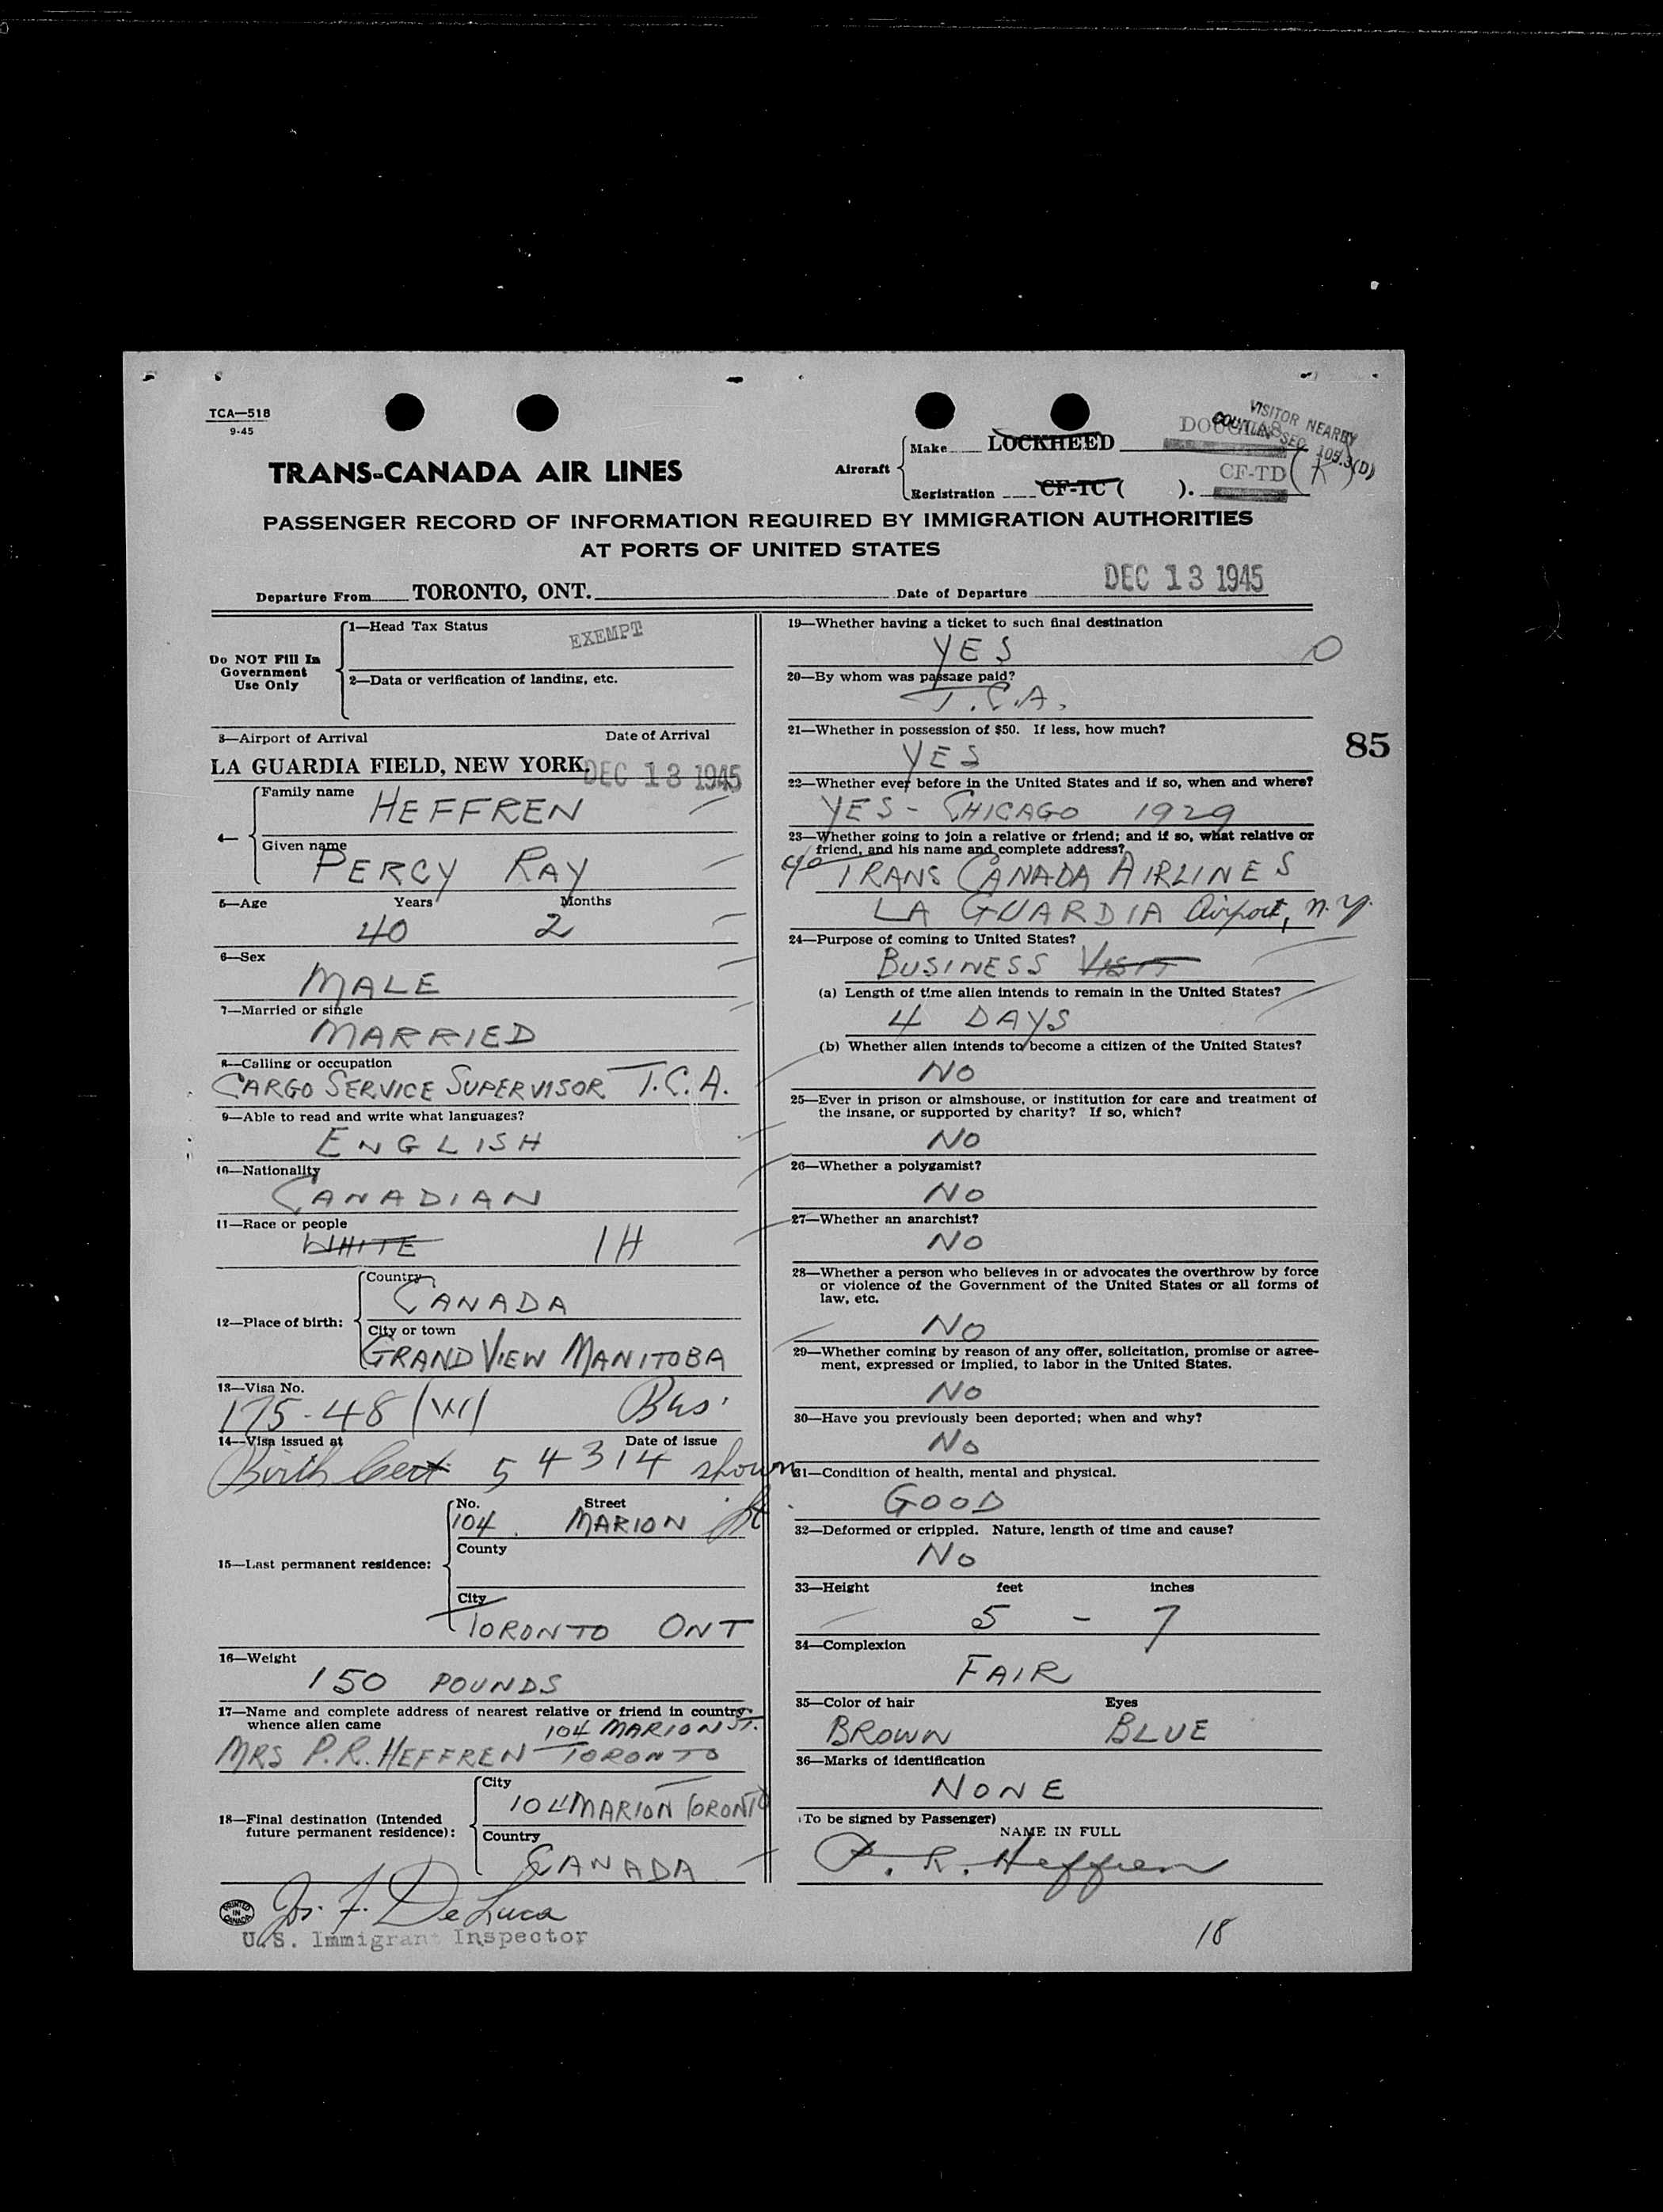 TCA—518
9-45
TRANS-CANADA AIR LINES
Aircraft
Make LOCKHEED
Registration CF-TC ( ).
CF-TD (K)
VISITOR NEARBY
SEC 105.3(D)
PASSENGER RECORD OF INFORMATION REQUIRED BY IMMIGRATION AUTHORITIES
AT PORTS OF UNITED STATES
Departure From TORONTO, ONT. Date of Departure DEC 13 1945
Do NOT Fill In
Government
Use Only
1—Head Tax Status EXEMPT
2—Data or verification of landing, etc.
3—Airport of Arrival Date of Arrival
LA GUARDIA FIELD, NEW YORK. DEC 13 1945
4—
Family name
HEFFREN
Given name
PERCY RAY
5—Age Years Months
40 2
6—Sex
MALE
7—Married or single
MARRIED
8—Calling or occupation
CARGO SERVICE SUPERVISOR T.C.A.
9—Able to read and write what languages?
ENGLISH
10—Nationality
CANADIAN
11—Race or people
WHITE IH
12—Place of birth:
Country
CANADA
City or town
GRAND VIEW MANITOBA
13—Visa No.
175-48 Bus.
14—Visa issued at Date of issue
Birth Cert 54314 shown
15—Last permanent residence:
No. Street
104 MARION St
County
City
TORONTO ONT
16—Weight
150 POUNDS
17—Name and complete address of nearest relative or friend in country
whence alien came 104 MARION ST.
MRS P.R. HEFFREN TORONTO
18—Final destination (Intended
future permanent residence):
City
104 MARION TORONTO
Country
CANADA
PRINTED
IN
CANADA
Jos. F. De Luca
U.S. Immigrant Inspector
19—Whether having a ticket to such final destination
YES
20—By whom was passage paid?
T.C.A.
21—Whether in possession of $50. If less, how much?
YES
85
22—Whether ever before in the United States and if so, when and where?
YES - CHICAGO 1929
23—Whether going to join a relative or friend; and if so, what relative or
friend, and his name and complete address?
c/o TRANS CANADA AIRLINES
LA GUARDIA Airport, N.Y.
24—Purpose of coming to United States?
BUSINESS VISIT
(a) Length of time alien intends to remain in the United States?
4 DAYS
(b) Whether alien intends to become a citizen of the United States?
NO
25—Ever in prison or almshouse, or institution for care and treatment of
the insane, or supported by charity? If so, which?
NO
26—Whether a polygamist?
NO
27—Whether an anarchist?
NO
28—Whether a person who believes in or advocates the overthrow by force
or violence of the Government of the United States or all forms of
law, etc.
NO
29—Whether coming by reason of any offer, solicitation, promise or agree-
ment, expressed or implied, to labor in the United States.
NO
30—Have you previously been deported; when and why?
NO
31—Condition of health, mental and physical.
GOOD
32—Deformed or crippled. Nature, length of time and cause?
NO
33—Height feet inches
5 - 7
34—Complexion
FAIR
35—Color of hair Eyes
BROWN BLUE
36—Marks of identification
NONE
(To be signed by Passenger)
NAME IN FULL
P. R. Heffren
18